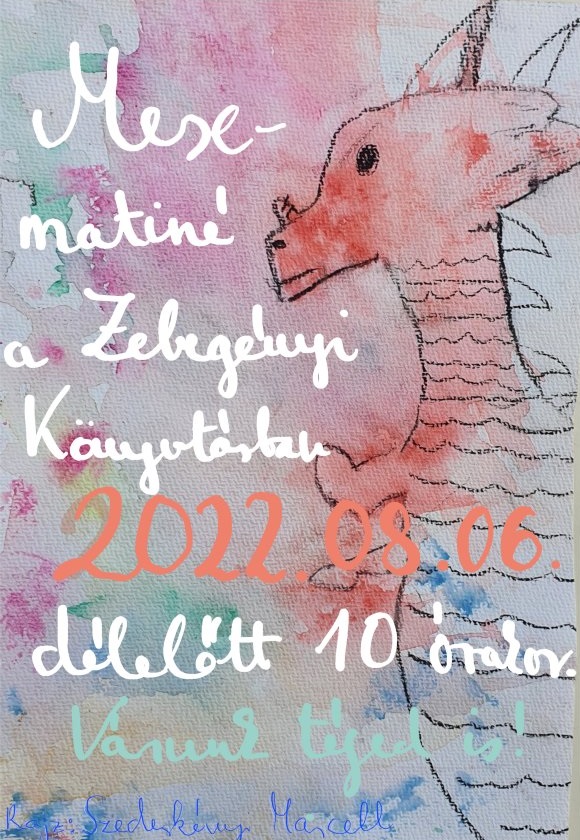 Mese-
matiné
a Zebegényi
Könyvtárban
2022.08.06.
délelőtt 10 órakor.
Várunk téged is!
Rajz: Szederkényi Marcell